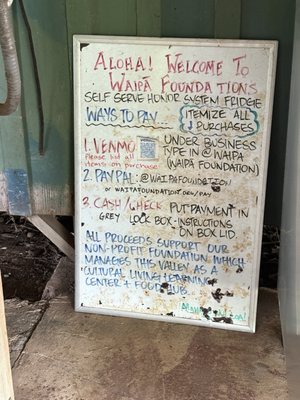 ALOHA! WELCOME TO
WAIPĀ FOUNDATIONS
SELF SERVE HONOR SYSTEM FRIDGE
WAYS TO PAY...
ITEMIZE ALL
PURCHASES
1. VENMO
Please list all
items on purchase
UNDER BUSINESS
TYPE IN @ WAIPA
(WAIPA FOUNDATION)
2. PAYPAL: @WAIPAFOUNDATION
OR WAIPAFOUNDATION.ORG/PAY
3. CASH/CHECK PUT PAYMENT IN
GREY LOCK BOX - INSTRUCTIONS
ON BOX LID
ALL PROCEEDS SUPPORT OUR
NON-PROFIT FOUNDATION WHICH
MANAGES THIS VALLEY AS A
CULTURAL LIVING LEARNING
CENTER & FOOD HUB.